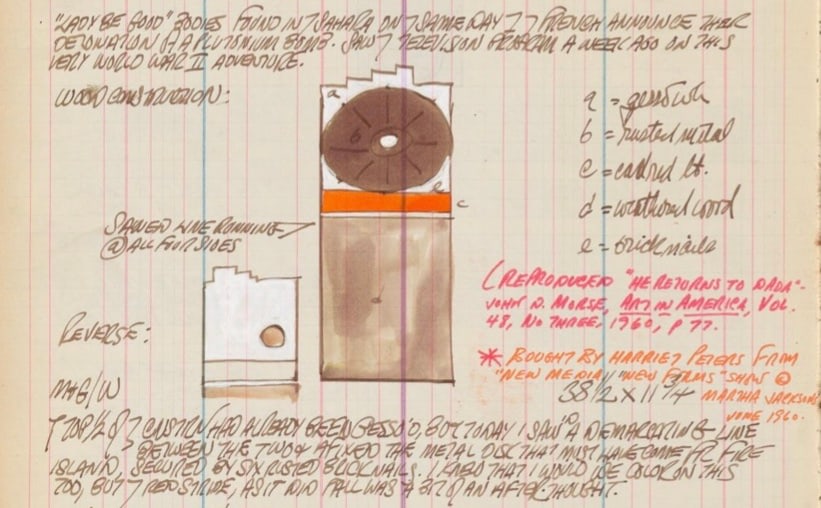 "LADY BE GOOD" BODIES FOUND IN 7 SAHARA ON 7 SAME DAY 7 7 FRENCH ANNOUNCE THEIR
DETONATION OF A PLUTONIUM BOMB. SAW 7 TELEVISION PROGRAM A WEEK AGO ON THIS
VERY WORLD WAR II ADVENTURE.
WOOD CONSTRUCTION:
a
b
e
c
d
a = gesso wh
b = rusted metal
c = cad red lt.
d = weathered wood
e = brick nails
SAWED LINE RUNNING
@ ALL FOUR SIDES
REVERSE:
(REPRODUCED "HE RETURNS TO DADA"-
JOHN D. MORSE, ART IN AMERICA, VOL.
48, NO THREE, 1960, P 77.
* BOUGHT BY HARRIET PETERS FROM
"NEW MEDIA/"NEW FORMS" SHOW @
MARTHA JACKSONS
JUNE 1960.
38 1/2 X 11 3/4
M+G/W
7 TOP 1/2 OF 7 CNSTRN HAD ALREADY BEEN GESSO'D, BUT TODAY I SAW'D A DEMARCATING LINE
BETWEEN THE TWO & AFIXED THE METAL DISC THAT MUST HAVE COME FR FIRE
ISLAND, SECURED BY SIX RUSTED BRICK NAILS. I KNEW THAT I WOULD USE COLOR ON THIS
TOO, BUT 7 RED STRIPE, AS IT DID FALL WAS A BIT OF AN AFTER-THOUGHT.